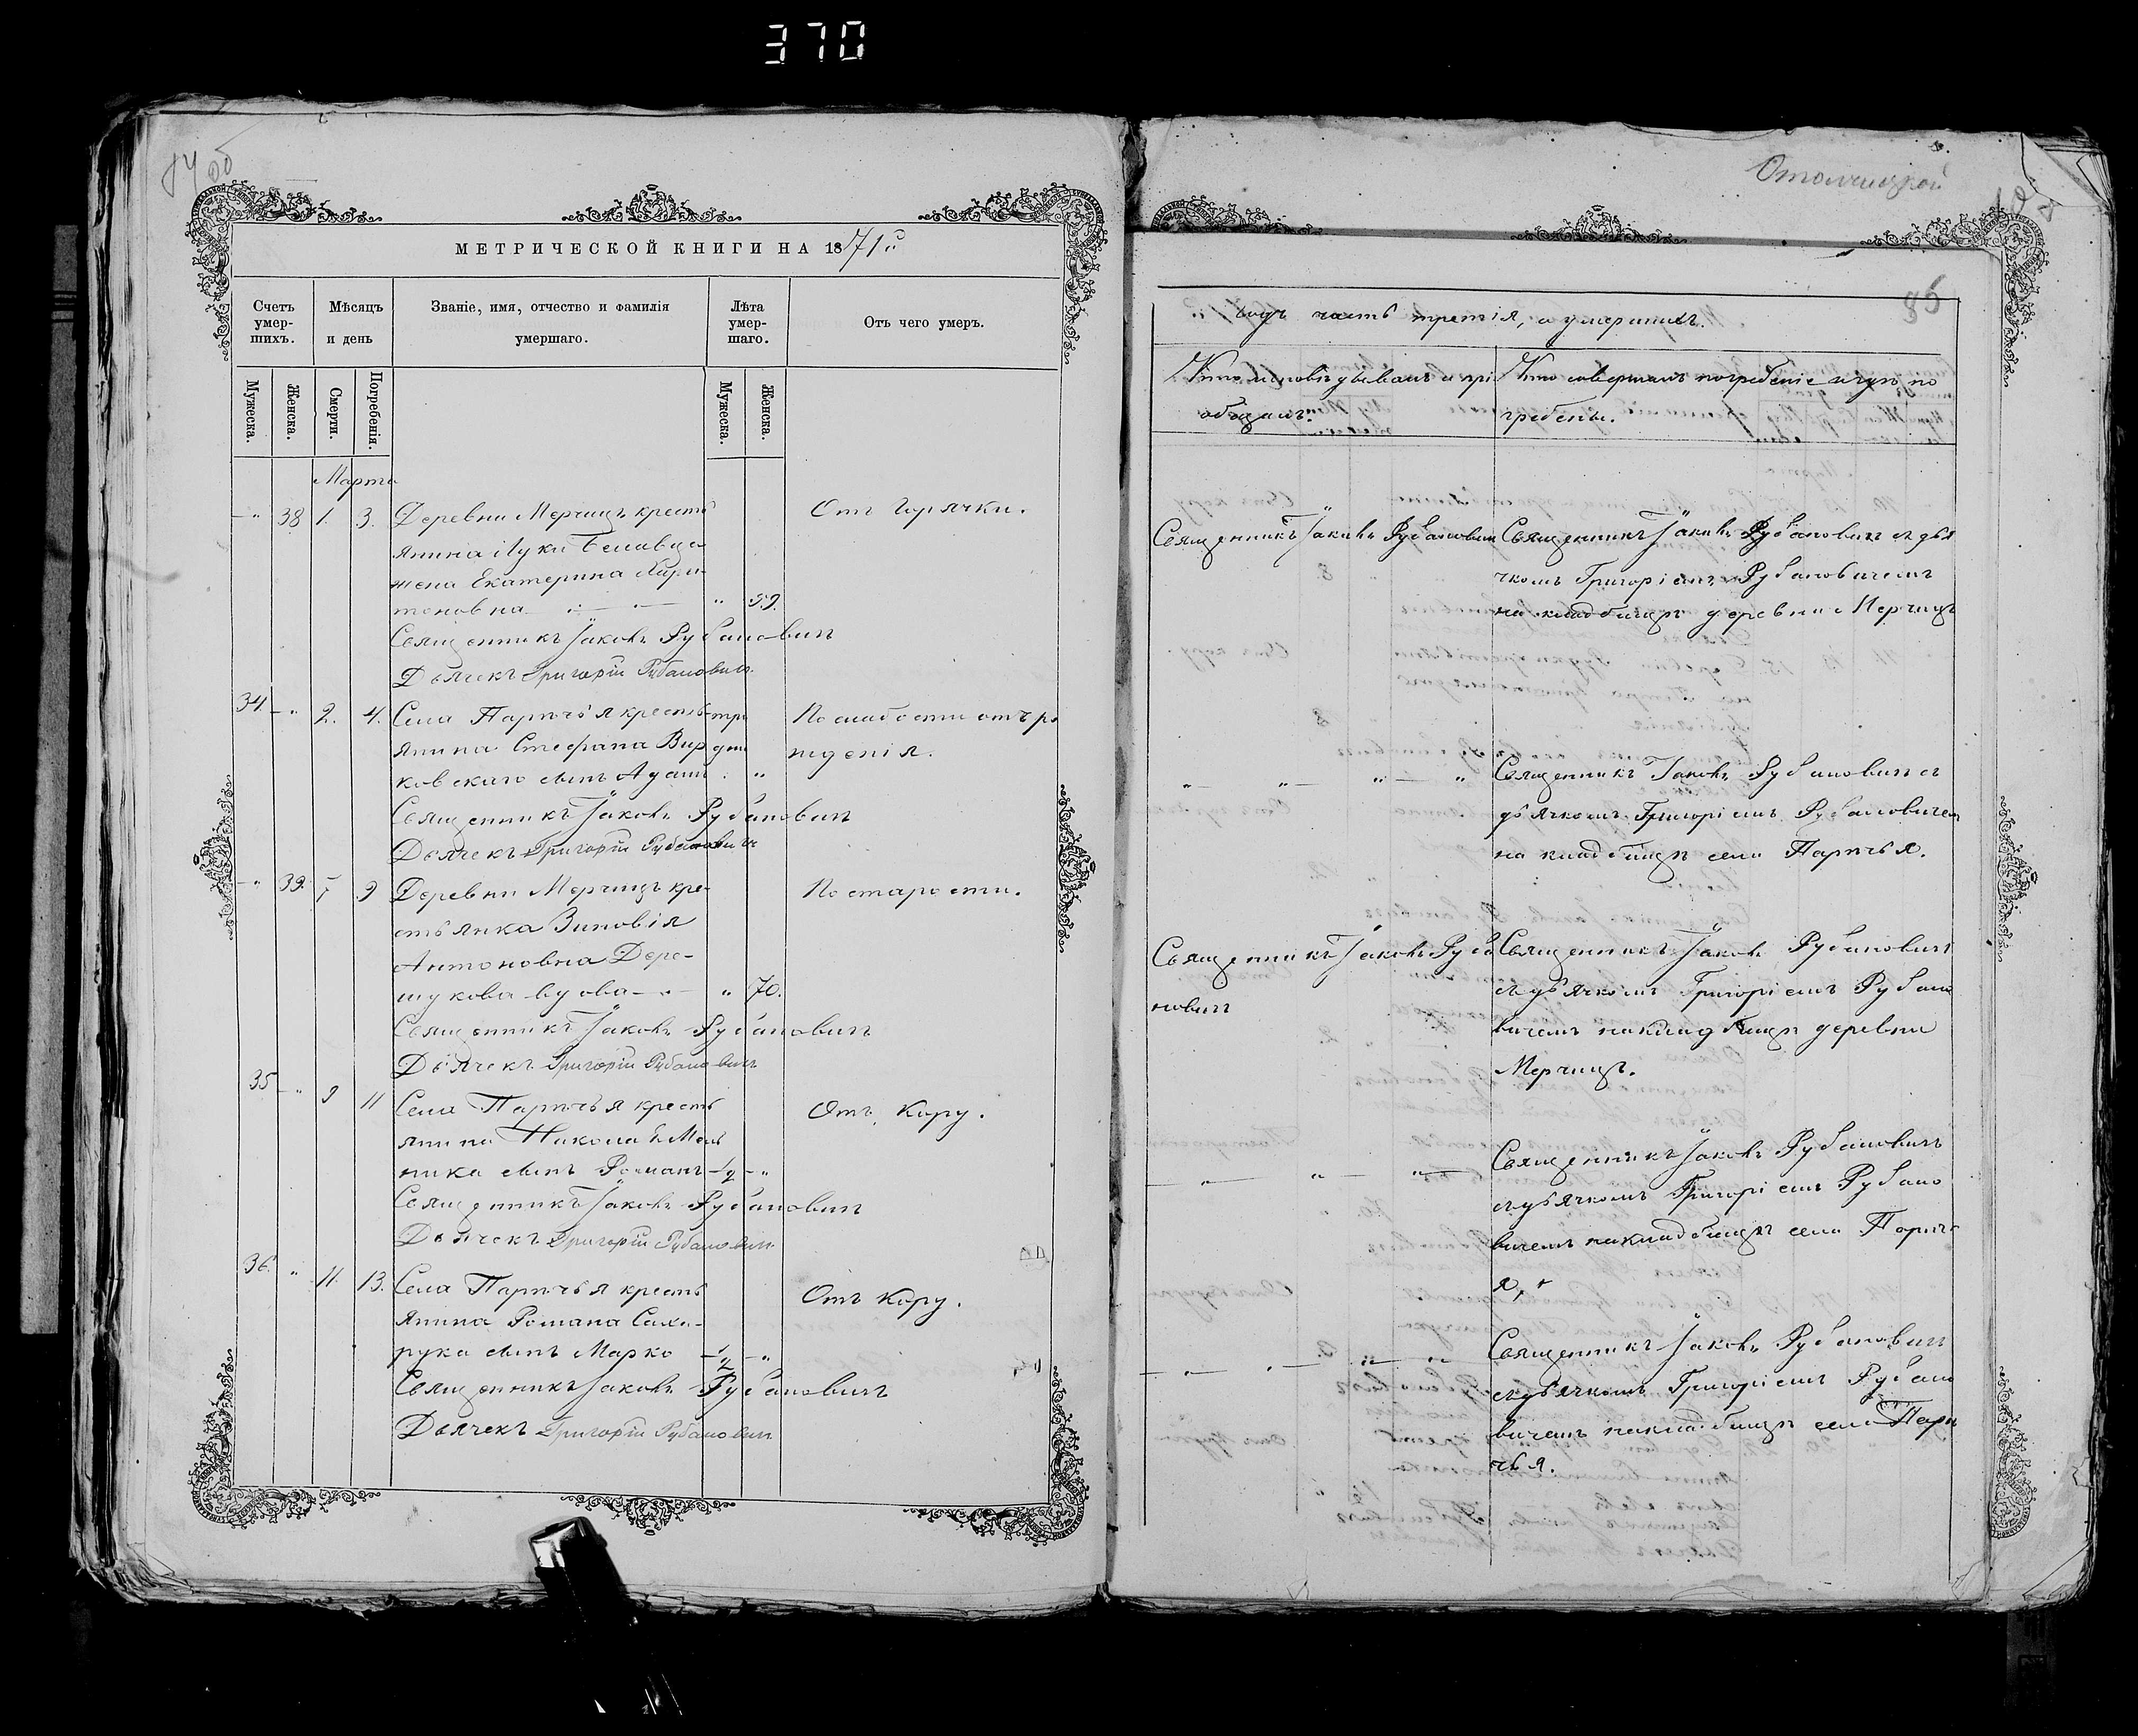 370
84 об
МЕТРИЧЕСКОЙ КНИГИ НА 1871й
Счетъ умер-шихъ.
Мѣсяцъ и день
Званіе, имя, отчество и фамилія умершаго.
Лѣта умер-шаго.
Отъ чего умеръ.
Мужеска.
Женска.
Смерти.
Погребенія.
Мужеска.
Женска.
Марта
38 1. 3. Деревни Мерчицъ кресть
Отъ Горячки.
янина Луки
жена Екатерина Хари-
тоновна 59.
Священникъ Іаковъ Рубановичъ
Дьячекъ Григорій Рубановичъ
34. 2. 4. Села Парѣчья кресть
По слабости отъ ро
янина Стефана Вир
жденія.
ковскаго сынъ Адамъ
Священникъ Іаковъ Рубановичъ
Дьячекъ Григорій Рубановичъ
39. 7 9 Деревни Мерчицъ кре-
По старости.
стьянка Зиновія
Антоновна Дере-
шукова вдова 70.
Священникъ Іаковъ Рубановичъ
Дьячекъ Григорій Рубановичъ
35 9 11 Села Парѣчья кресть
Отъ Кору.
янина Николая Мель
ника сынъ Романъ 1/2
Священникъ Іаковъ Рубановичъ
Дьячекъ Григорій Рубановичъ
36. 11. 13. Села Парѣчья кресть
Отъ Кору.
янина Романа Сахо-
рука сынъ Марко 1/2
Священникъ Іаковъ Рубановичъ
Дьячекъ Григорій Рубановичъ
85
годъ часть третія, о умершихъ.
Кто исповѣдывалъ и прі
общалъ.
Кто совершалъ погребеніе и гдѣ по
гребены.
Священникъ Іаковъ Рубановичъ
Священникъ Іаковъ Рубановичъ съ дья
чкомъ Григоріемъ Рубановичемъ
на кладбищѣ деревни Мерчицъ
Священникъ Іаковъ Рубановичъ съ
дьячкомъ Григоріемъ Рубановичем
на кладбищѣ села Парѣчья.
Священникъ Іаковъ Руба
новичъ
Священникъ Іаковъ Рубановичъ
съ дьячкомъ Григоріемъ Рубано
вичемъ на кладбищѣ деревни
Мерчицъ.
Священникъ Іаковъ Рубановичъ
съ дьячкомъ Григоріемъ Рубано
вичемъ на кладбищѣ села Парѣчь
я,
Священникъ Іаковъ Рубановичъ
съ дьячкомъ Григоріемъ Рубано
вичемъ на кладбищѣ села Парѣ
чья.